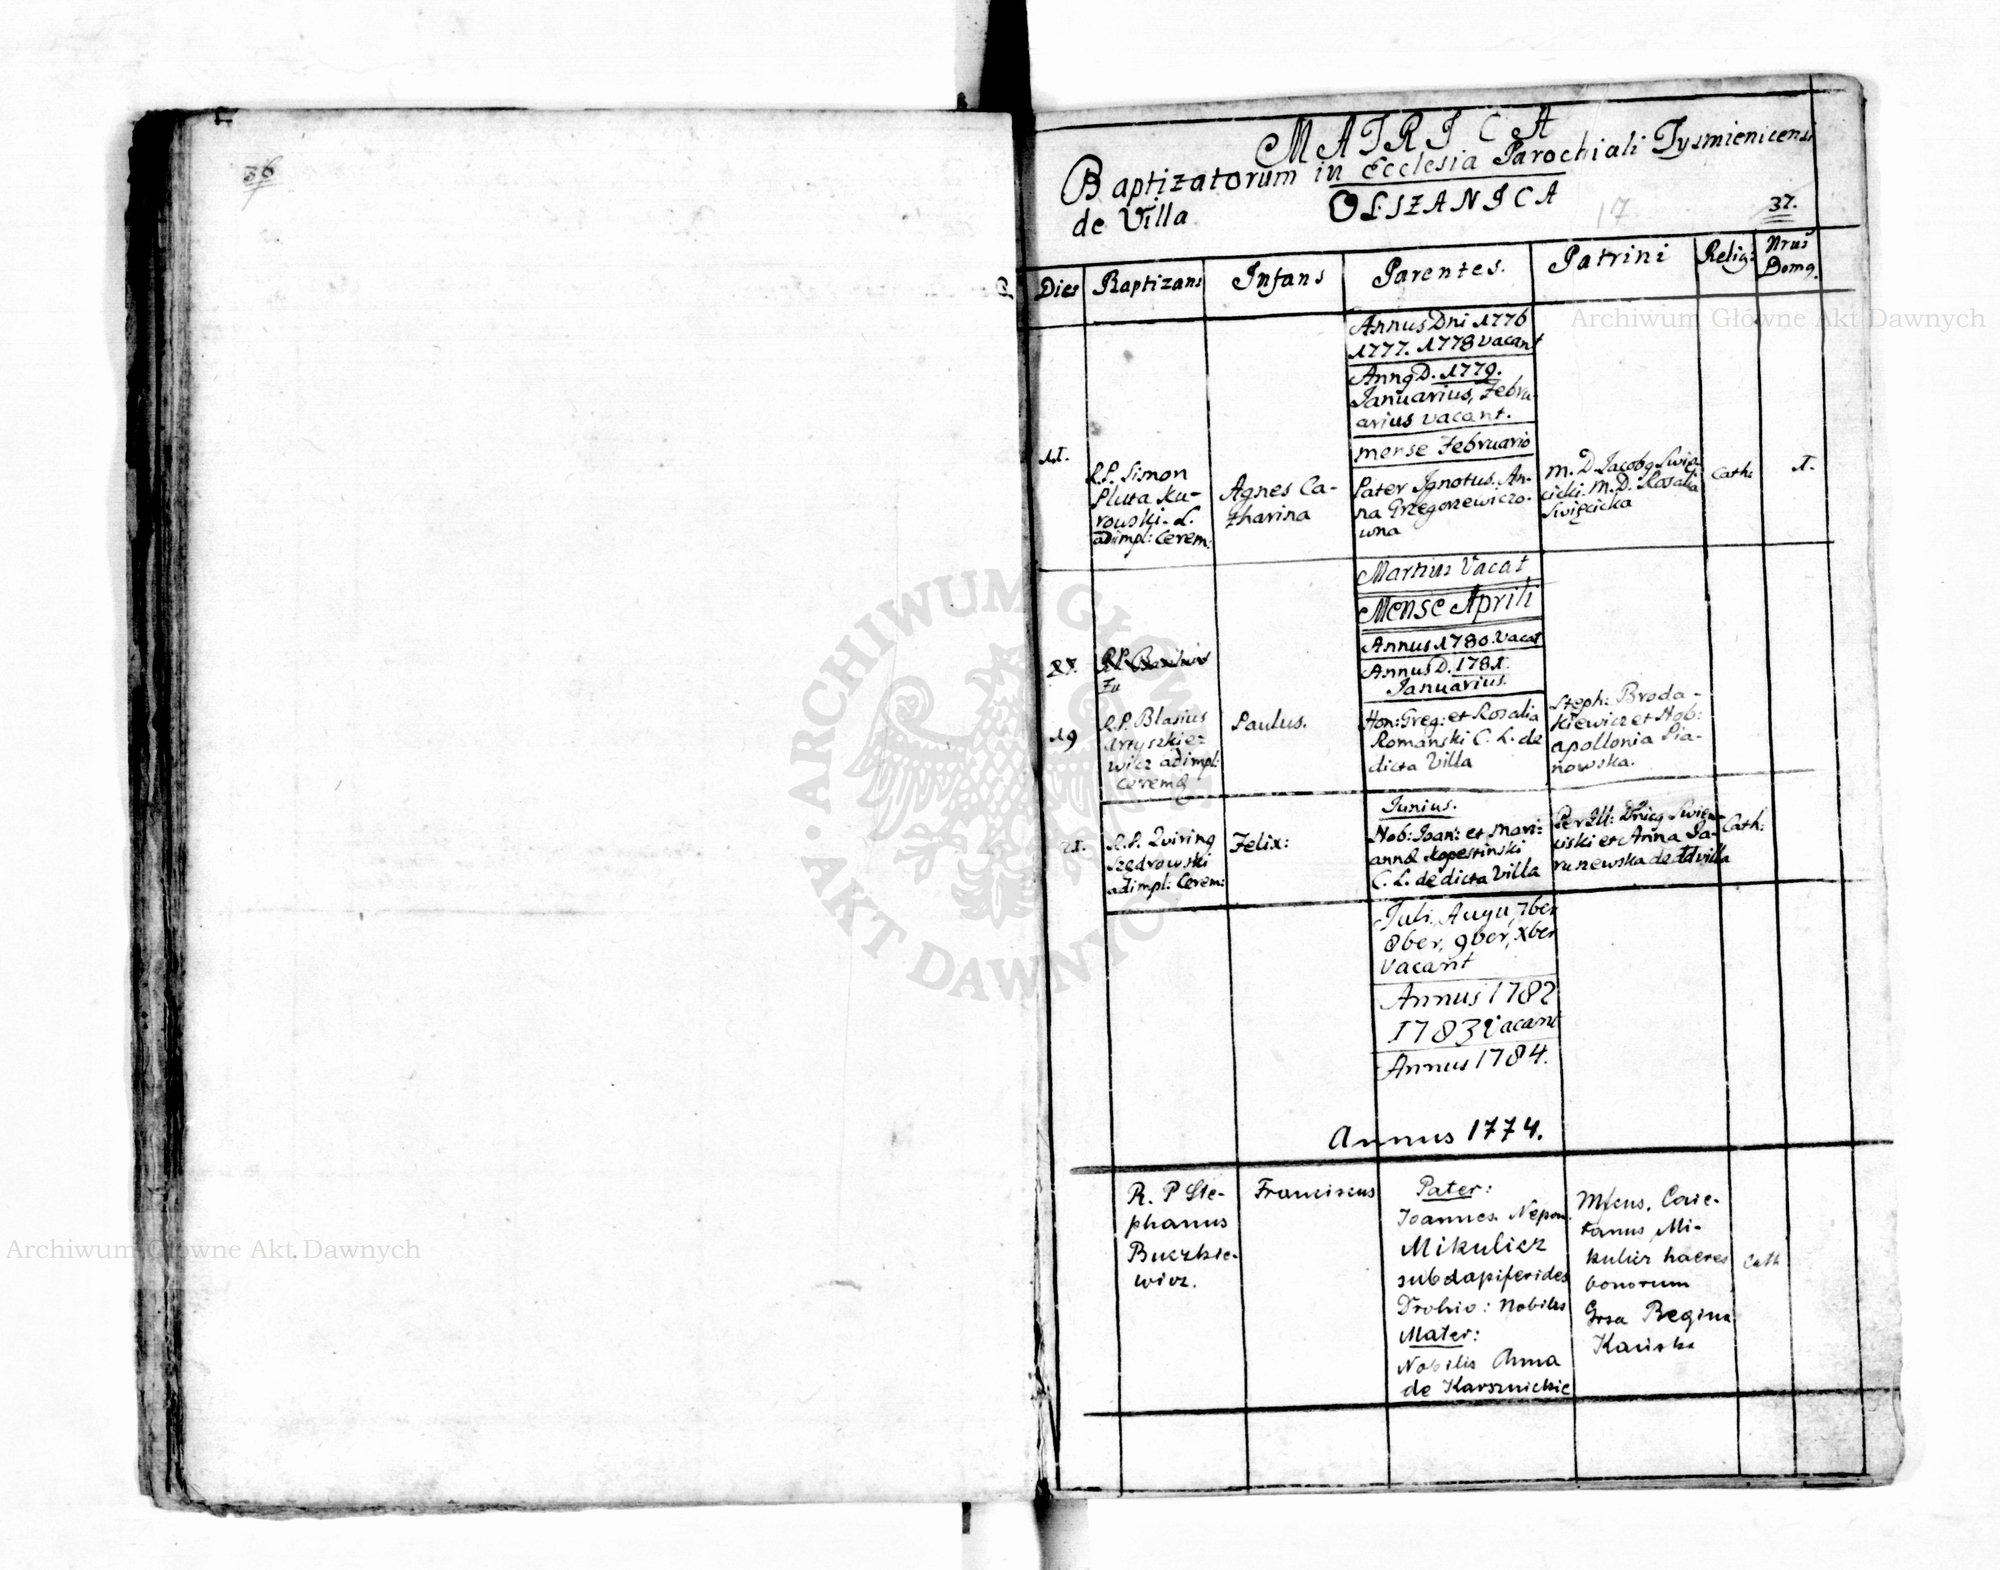 36
MATRICA
Baptizatorum in Ecclesia Parochiali Tysmienicensi
de Villa OLSZANICA
17
37.
Dies
Baptizans
Infans
Parentes.
Patrini
Relig:
Nrus
Domq.
Annus Dni 1776
1777. 1778 vacant
Annq D. 1779.
Januarius, Febru
arius vacant.
mense Februario
11.
R.P. Simon
Pluta Ku-
rowski. L.
adimpl: Cerem:
Agnes Ca-
tharina
Pater Ignotus. An-
na Grzegorzewiczo-
wna
M. D. Jacobq Swię-
cicki. M. D. Rosalia
Swięcicka
Cath:
1.
Martius Vacat
Mense Aprili
Annus 1780. Vacat
Annus D. 1781.
Januarius.
R.P.
19
R.P. Blasius
Arzyszkie-
wicz adimpl:
Paulus.
Hon: Greg: et Rosalia
Romanski C. L. de
dicta Villa
Steph: Broda-
kiewicz et Nob:
apollonia Pia-
nowska.
Junius.
21.
R.P. Quiring
Szędrowski
adimpl: Cerem:
Felix:
Nob: Joan: et Mari-
Kopestinski
C. L. de dicta Villa
Per Ill: Dnicq
et Anna
de dd villa
Cath:
Juli, Augu, 7ber
8ber, 9ber, Xber
Vacant
Annus 1782
1783 Vacant
Annus 1784.
Annus 1774.
R. P Ste-
phanus
Buczkie-
wicz.
Franciscus
Pater:
Joannes. Nepom.
Mikulicz
subdapiferides
Drohic: Nobiles
Mater:
Nobilis Anna
de Karsznickie
Mfcus. Caie-
tanus Mi-
kulicz haeres
bonorum
Gosa Regina
Kańska
Cath
Archiwum Główne Akt Dawnych
Archiwum Główne Akt Dawnych
ARCHIWUM GŁÓWNE
AKT DAWNYCH